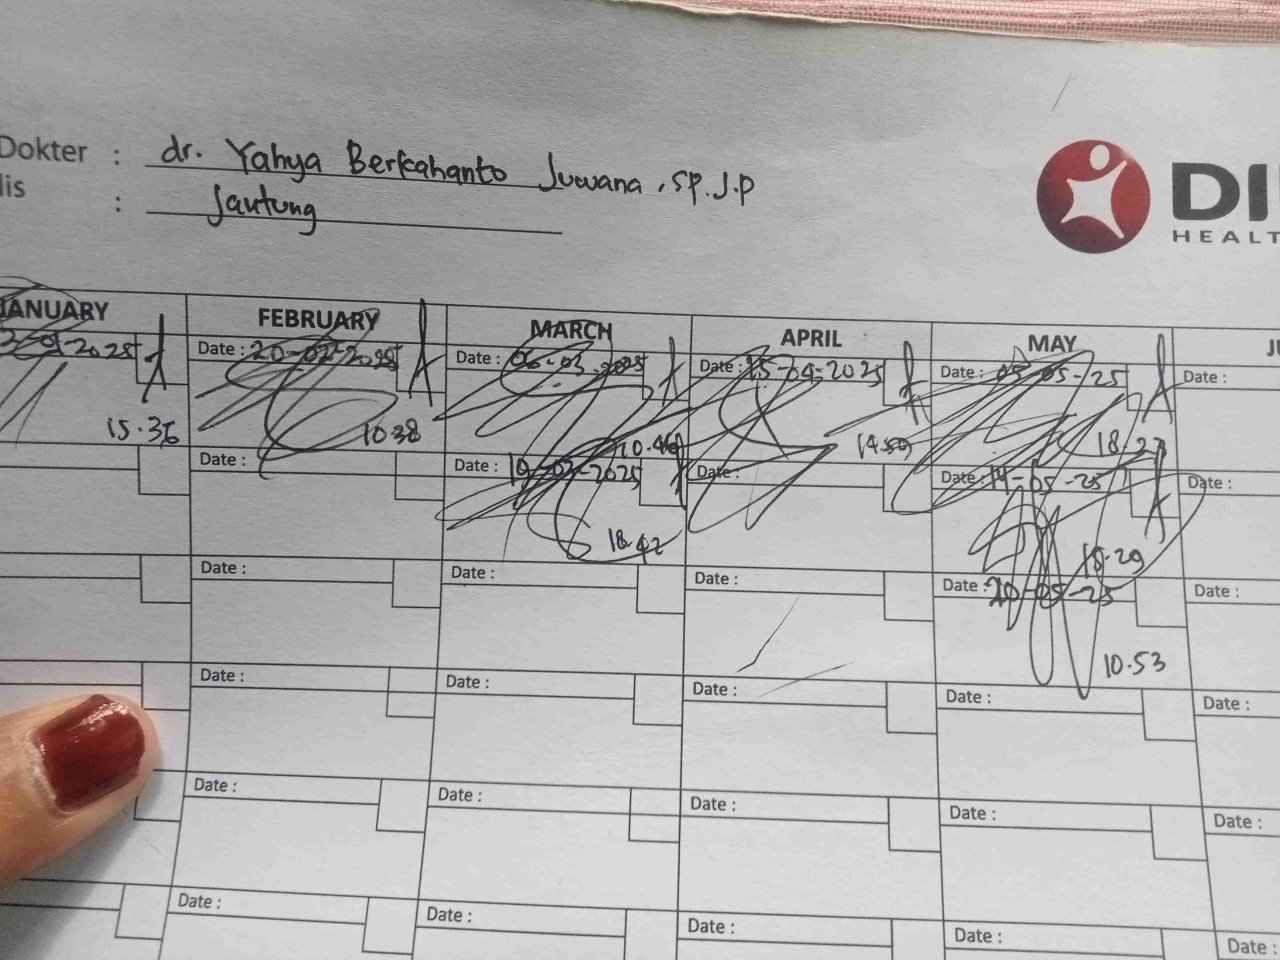 Dokter : dr. Yahya Berkahanto Juwana, Sp.J.P
lis : Jantung
DI
HEALT
JANUARY FEBRUARY MARCH APRIL MAY JU
-2025 Date : 20-02-2025 Date : 06-03-2025 Date : 15-04-2025 Date : 05-05-25 Date :
15.36 10.38 10.46 14.59 18.27
Date : Date : 19-03-2025 Date : Date : 14-05-25 Date :
18.42 18.29
Date : Date : Date : Date : 20-05-25 Date :
10.53
Date : Date : Date : Date : Date :
Date : Date : Date : Date : Date :
Date : Date : Date : Date : Date :